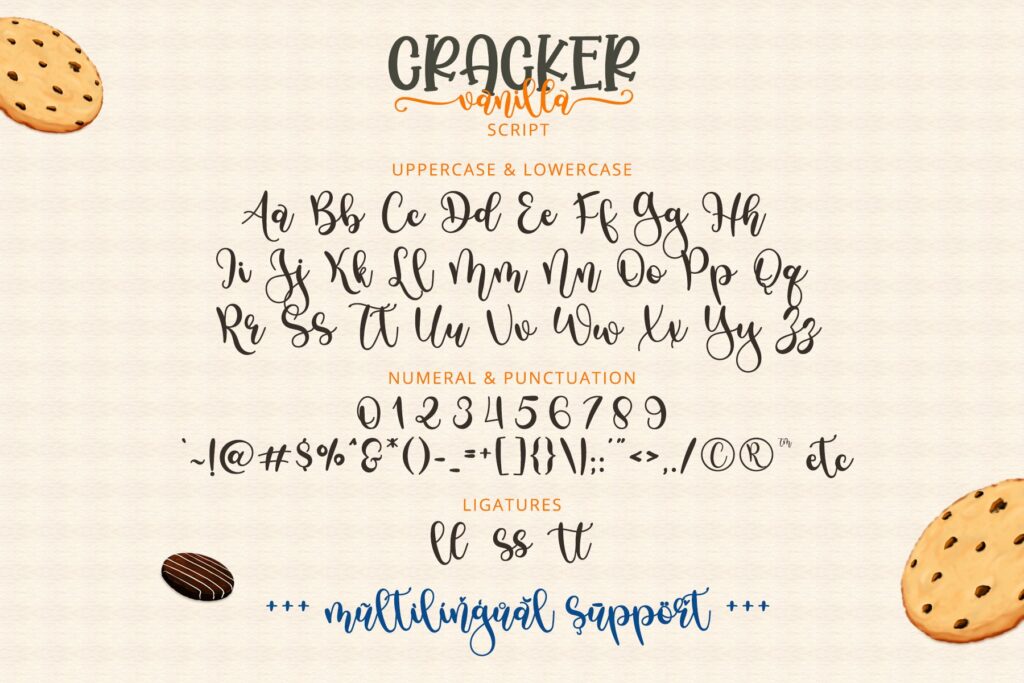 CRACKER
vanilla
SCRIPT
UPPERCASE & LOWERCASE
Aa Bb Cc Dd Ee Ff Gg Hh
Ii Jj Kk Ll Mm Nn Oo Pp Qq
Rr Ss Tt Uu Vv Ww Xx Yy Zz
NUMERAL & PUNCTUATION
0 1 2 3 4 5 6 7 8 9
`~!@#$%^&*()-_=+[]{}\|;:'"<>,./©®™ etc
LIGATURES
ll ss tt
+++ mūltilińgúăl şūppört +++